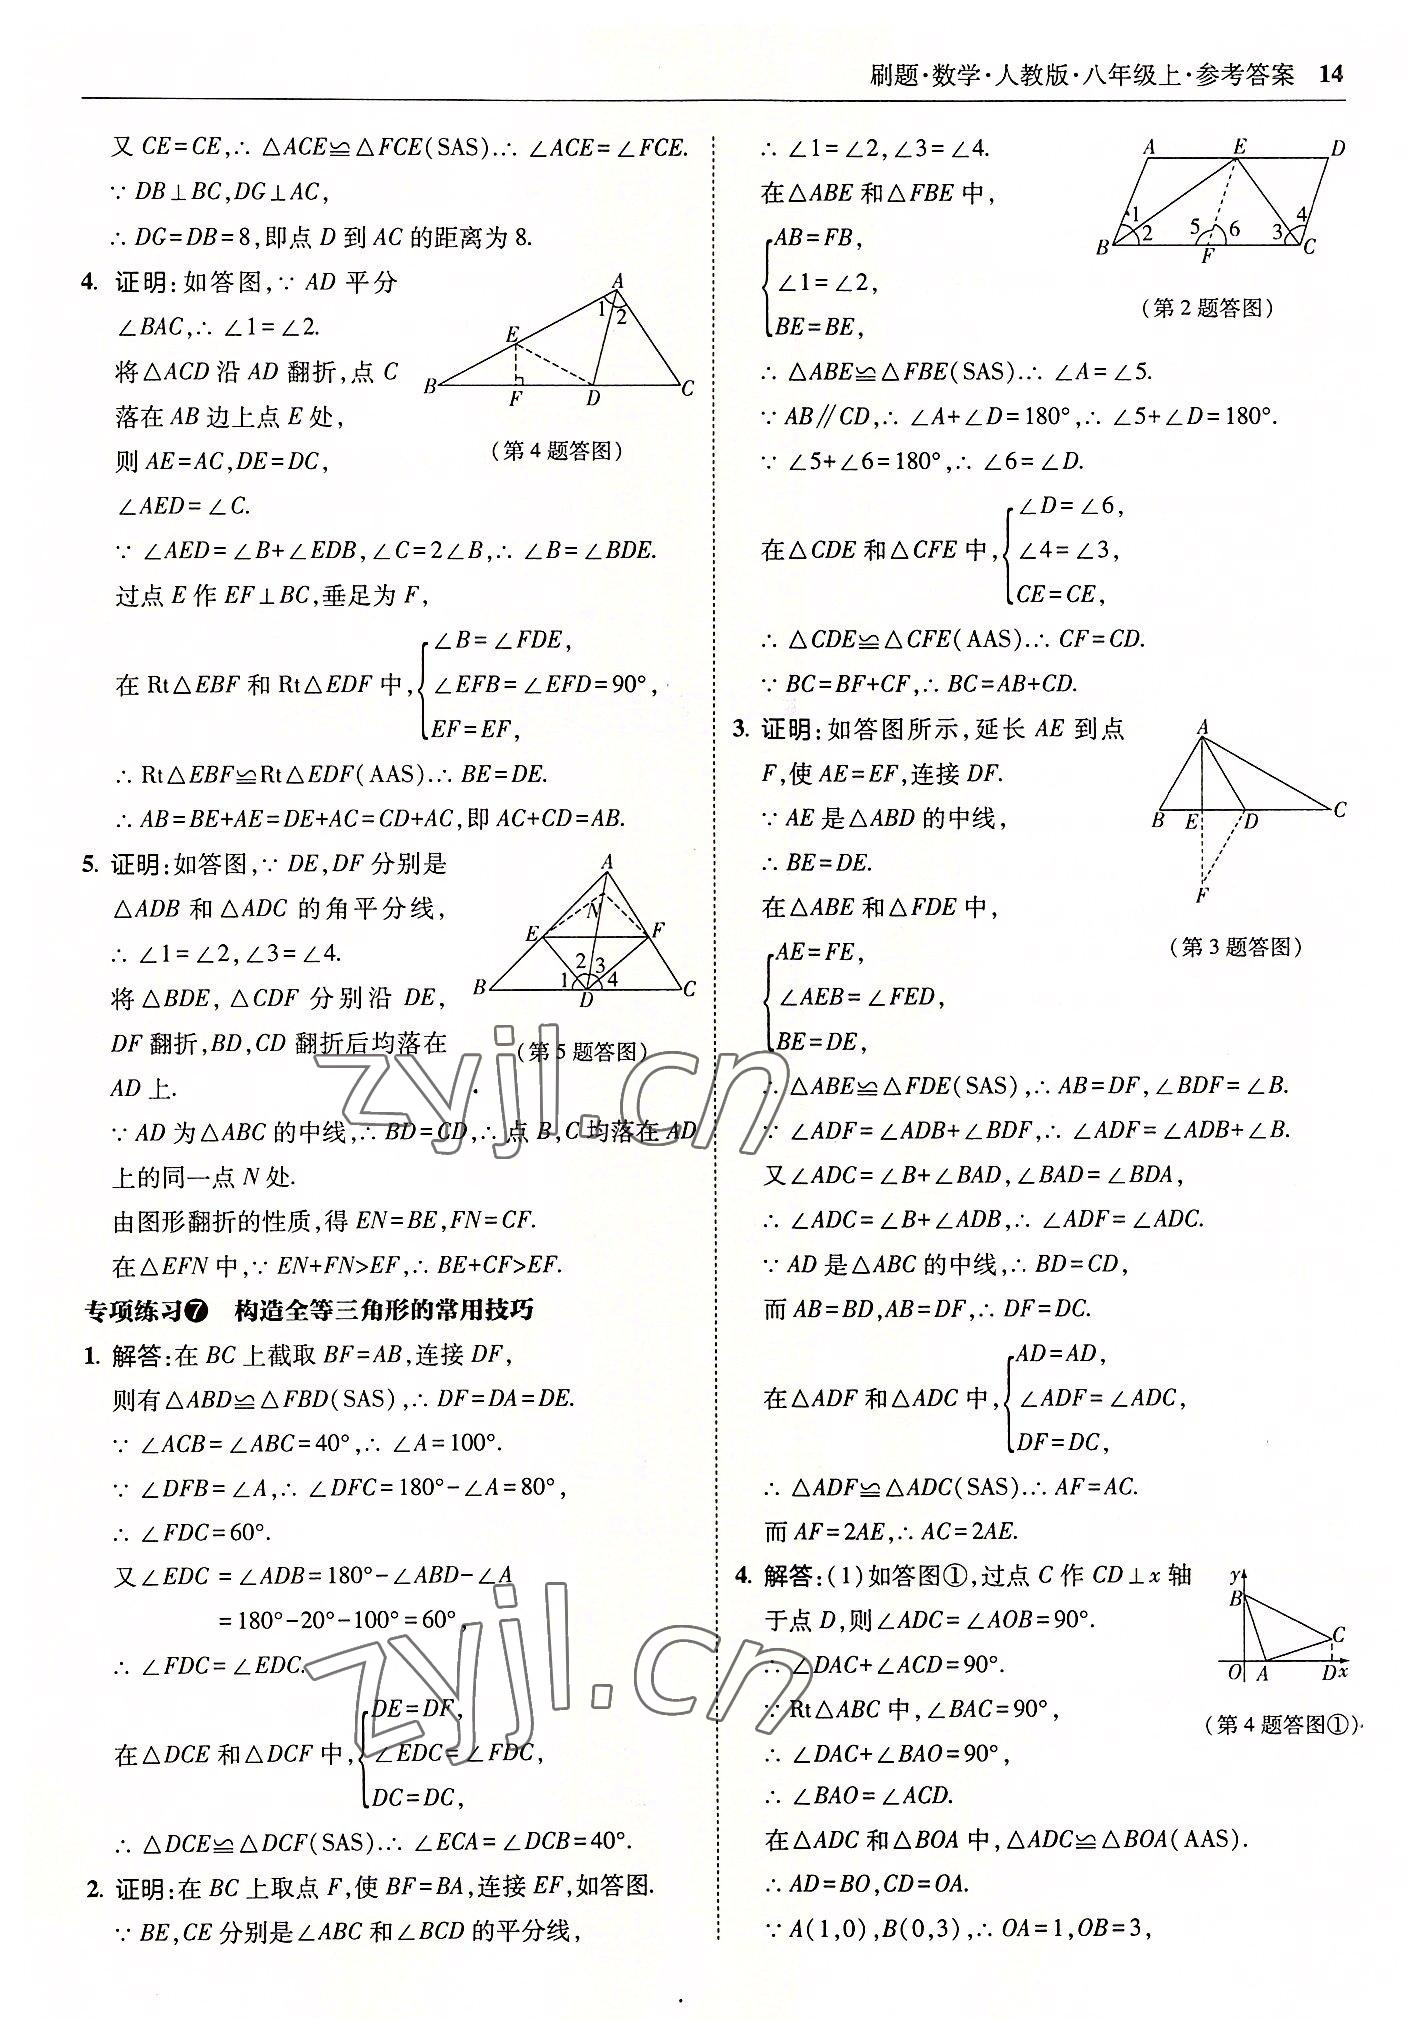 刷题·数学·人教版·八年级上·参考答案 14
又CE=CE,∴ △ACE≌△FCE(SAS).∴ ∠ACE=∠FCE.
∵ DB⊥BC,DG⊥AC,
∴ DG=DB=8,即点D到AC的距离为8.
4. 证明:如答图,∵ AD平分
∠BAC,∴ ∠1=∠2.
将△ACD沿AD翻折,点C
落在AB边上点E处,
则AE=AC,DE=DC,
∠AED=∠C.
A
1
2
E
B
F
D
C
(第4题答图)
∵ ∠AED=∠B+∠EDB,∠C=2∠B,∴ ∠B=∠BDE.
过点E作EF⊥BC,垂足为F,
∠B=∠FDE,
在Rt△EBF和Rt△EDF中,∠EFB=∠EFD=90°,
EF=EF,
∴ Rt△EBF≌Rt△EDF(AAS).∴ BE=DE.
∴ AB=BE+AE=DE+AC=CD+AC,即AC+CD=AB.
5. 证明:如答图,∵ DE,DF分别是
△ADB和△ADC的角平分线,
∴ ∠1=∠2,∠3=∠4.
将△BDE,△CDF分别沿DE,
DF翻折,BD,CD翻折后均落在
AD上.
A
N
E
F
2
3
1
4
B
D
C
(第5题答图)
∵ AD为△ABC的中线,∴ BD=CD,∴点B,C均落在AD
上的同一点N处.
由图形翻折的性质,得EN=BE,FN=CF.
在△EFN中,∵ EN+FN>EF,∴ BE+CF>EF.
专项练习❼ 构造全等三角形的常用技巧
1. 解答:在BC上截取BF=AB,连接DF,
则有△ABD≌△FBD(SAS),∴ DF=DA=DE.
∵ ∠ACB=∠ABC=40°,∴ ∠A=100°.
∵ ∠DFB=∠A,∴ ∠DFC=180°-∠A=80°,
∴ ∠FDC=60°.
又∠EDC=∠ADB=180°-∠ABD-∠A
=180°-20°-100°=60°,
∴ ∠FDC=∠EDC.
DE=DF,
在△DCE和△DCF中,∠EDC=∠FDC,
DC=DC,
∴ △DCE≌△DCF(SAS).∴ ∠ECA=∠DCB=40°.
2. 证明:在BC上取点F,使BF=BA,连接EF,如答图.
∵ BE,CE分别是∠ABC和∠BCD的平分线,
∴ ∠1=∠2,∠3=∠4.
在△ABE和△FBE中,
AB=FB,
∠1=∠2,
BE=BE,
A
E
D
1
2
5
6
3
4
B
F
C
(第2题答图)
∴ △ABE≌△FBE(SAS).∴ ∠A=∠5.
∵ AB∥CD,∴ ∠A+∠D=180°,∴ ∠5+∠D=180°.
∵ ∠5+∠6=180°,∴ ∠6=∠D.
∠D=∠6,
在△CDE和△CFE中,∠4=∠3,
CE=CE,
∴ △CDE≌△CFE(AAS).∴ CF=CD.
∵ BC=BF+CF,∴ BC=AB+CD.
3. 证明:如答图所示,延长AE到点
F,使AE=EF,连接DF.
∵ AE是△ABD的中线,
∴ BE=DE.
在△ABE和△FDE中,
AE=FE,
∠AEB=∠FED,
BE=DE,
A
B
E
D
C
F
(第3题答图)
∴ △ABE≌△FDE(SAS),∴ AB=DF,∠BDF=∠B.
∵ ∠ADF=∠ADB+∠BDF,∴ ∠ADF=∠ADB+∠B.
又∠ADC=∠B+∠BAD,∠BAD=∠BDA,
∴ ∠ADC=∠B+∠ADB,∴ ∠ADF=∠ADC.
∵ AD是△ABC的中线,∴ BD=CD,
而AB=BD,AB=DF,∴ DF=DC.
AD=AD,
在△ADF和△ADC中,∠ADF=∠ADC,
DF=DC,
∴ △ADF≌△ADC(SAS).∴ AF=AC.
而AF=2AE,∴ AC=2AE.
4. 解答:(1)如答图①,过点C作CD⊥x轴
于点D,则∠ADC=∠AOB=90°.
∴ ∠DAC+∠ACD=90°.
∵ Rt△ABC中,∠BAC=90°,
∴ ∠DAC+∠BAO=90°,
∴ ∠BAO=∠ACD.
y
B
C
O
A
D
x
(第4题答图①)
在△ADC和△BOA中,△ADC≌△BOA(AAS).
∴ AD=BO,CD=OA.
∵ A(1,0),B(0,3),∴ OA=1,OB=3,
zyjl.cn
zyjl.cn